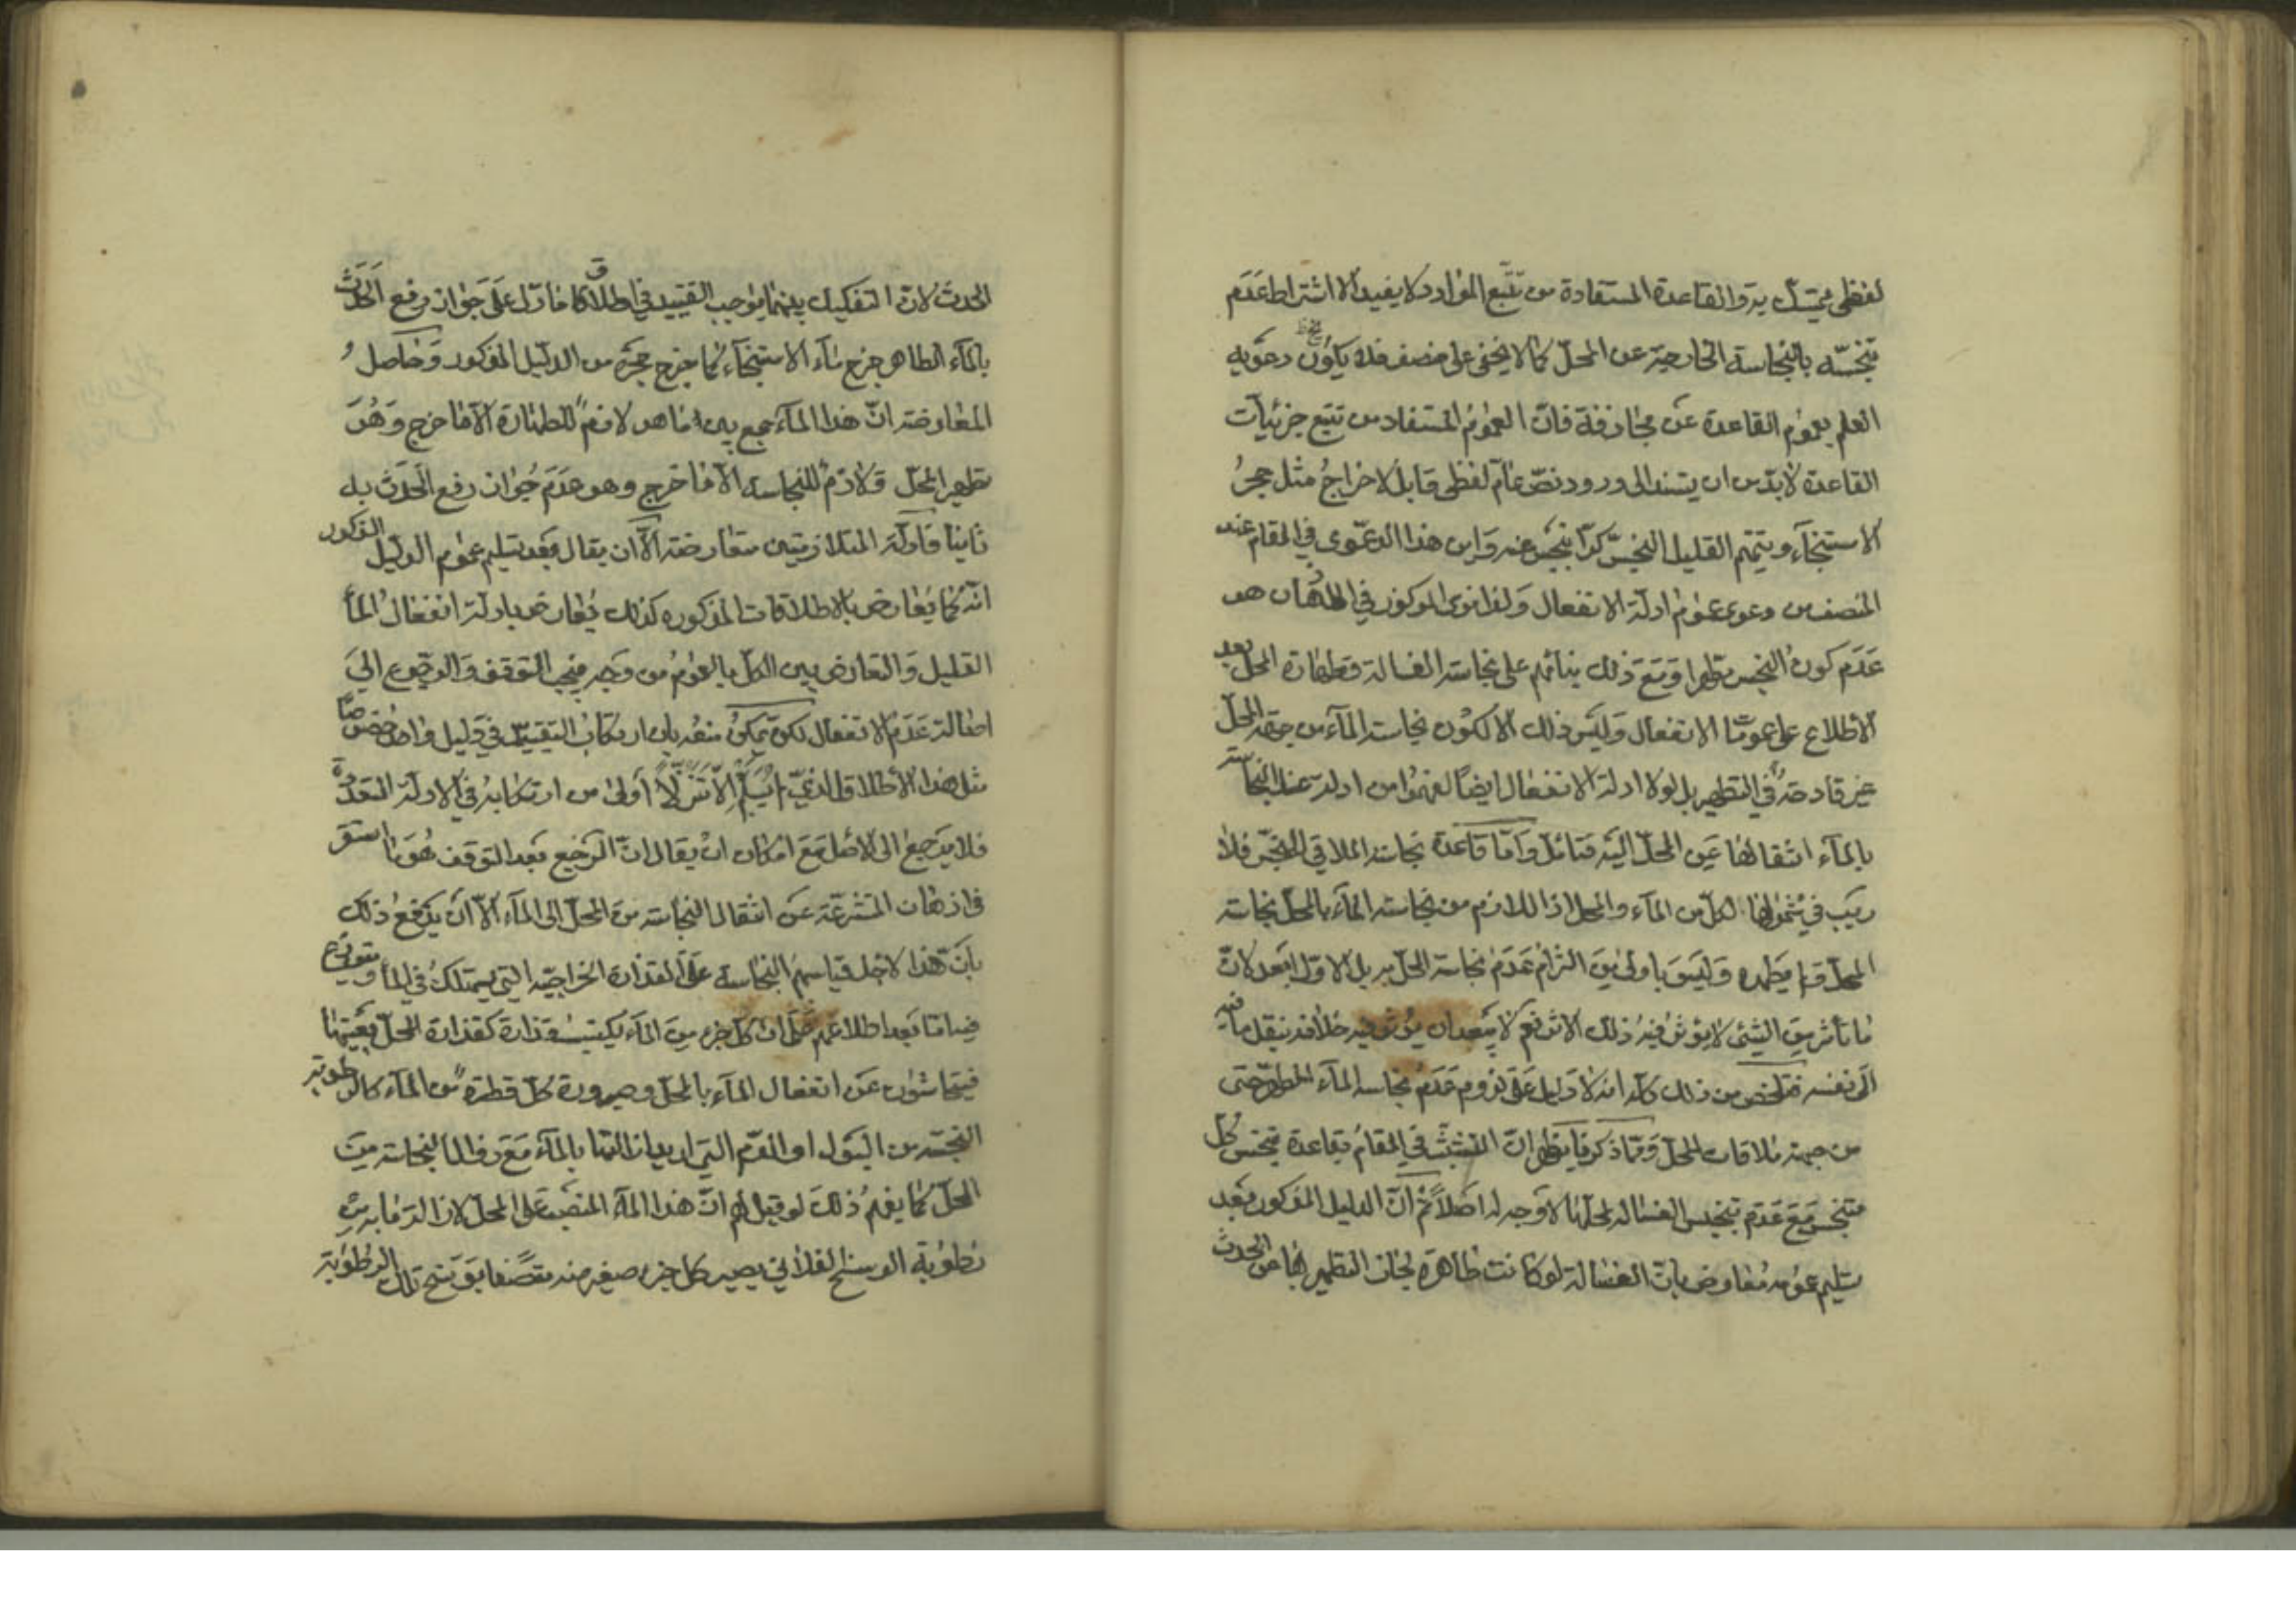 لفظي يتمسّك به والقاعدة المستفادة من تتبّع الموارد لا يفيد الا اشتراط عَدَم
تنجّسه بالنجاسة الخارجية عن المحلّ كما لا يخفى على منصف فلا يكون دعويه
العلم بعموم القاعدة عن مجازفة فانّ العموم المستفاد من تتبع جزئيات
القاعدة لا بدّ من ان يستند الى ورود نصّ عامّ لفظي قابل لاخراج مثل حجر
الاستنجآء ويتمّم القليل النجس كرّا بنجس عنه واين هذا الدعوى في المقام عند
المنصف من دعوى عموم ادلة الانفعال ولذا نوى المركوز في الاذهان هو
عَدَم كون النجس مطهرا ومَعَ ذلك بنائهم على نجاسة الغسالة وطهارة المحل بعد
الاطلاع على عمومات الانفعال وليس ذلك الا لكون نجاسة المآء من جهة المحلّ
غير قادحة في التطهير بل لولا ادلة الانفعال ايضا لفهموا من ادلة غسل النجاسة
بالمآء انتقالها عن المحلّ اليه فتامّل وامّا قاعدة نجاسة الملاقي للنجس فلا
ريب في شمولها لكل من المآء والمحل اذ اللازم من نجاسة المآء بالمحلّ نجاسة
المحلّ وليس باولى من التزام عَدَم نجاسة المحلّ به بل الاوّل ابعد لانّ
ما تأثر من الشئ لا يؤثر فيه ذلك الاثر نعم لا يبعد ان يؤثر فيه خلافه فينقل ما فيه
الى نفسه فتلخص من ذلك كلّه انه لا دليل على لزوم عَدَم نجاسة المآء المطهّر حتى
من جهة ملاقات المحل وممّا ذكرنا يظهر انّ التشبّث في المقام بقاعدة تنجّس كل
متنجس مَعَ عَدَم تنجيس الغسالة لمحلّها لا وجه له اصلاً ثمّ انّ الدليل المذكور بَعد
تسليم عمومه معارض بانّ الغسالة لو كانت طاهرة لجاز التطهير بها من الحدث
الحدث لانّ التفكيك بينهما يوجب التقييد في اطلاق ما دلّ على جَواز رفع الحَدَث
بالمآء الطاهر خرج مآء الاستنجآء كما خرج حجره من الدليل المذكور وحاصل
المعارضة انّ هذا المآء جمع بين ما هو لازم للطهارة الّا ما خرج وَهُوَ
تطهير المحلّ ولازم للنجاسة الّا ما خرج وهو عَدَم جواز رفع الحَدَث به
ثانيا فادلّة المتلازمين متعارضة الّا ان يقال بَعد تسليم عموم الدليل المذكور
انّه كما يعارض بالاطلاقات المذكوره كذلك يُعارض بادلّة انفعال المآ
القليل والتعارض بين الكلّ بالعموم من وَجه فيجب التوقف والرجوع الى
اصالة عَدَم الانفعال لكن يمكن منعه بان ارتكاب التقييد في دليل واحد خصوصًا
مثل هذا الاطلاق الذي لم يسلم الّا تنزّلًا اولى من ارتكابه في الادلة المتعدّدة
فلا يرجع الى الاصل مَعَ امكان ان يقال انّ المرجع بعد التوقف هُوَ ما استقر
في اذهان المتشرّعة عن انتقال النجاسة من المحلّ الى المآء الّا ان يدفع ذلك
بانّ هذا لاجل قياسهم النجاسة على القذارة الخارجيّة التي يستهلك في المآ ويتوزع
فيه امّا بَعد اطلاعهم على ان كلّ جزء من المآء يكتسب قذارة كقذارة المحلّ بعينها
فيتحاشون عن انفعال المآء بالمحلّ وصيرورة كلّ قطرة من المآء كالرطوبة
النجسة من البَول او الدّم التي اريد ازالتها بالمآء مَعَ زوال النجاسة من
المحلّ كما يفهم ذلك لو قيل لهم انّ هذا المآء المنصبّ على المحلّ لازالة ما به من
رطوبة الوسخ الفلاني يصير كل جزء صغير منه متّصفا بوسخ تلك الرطوبة